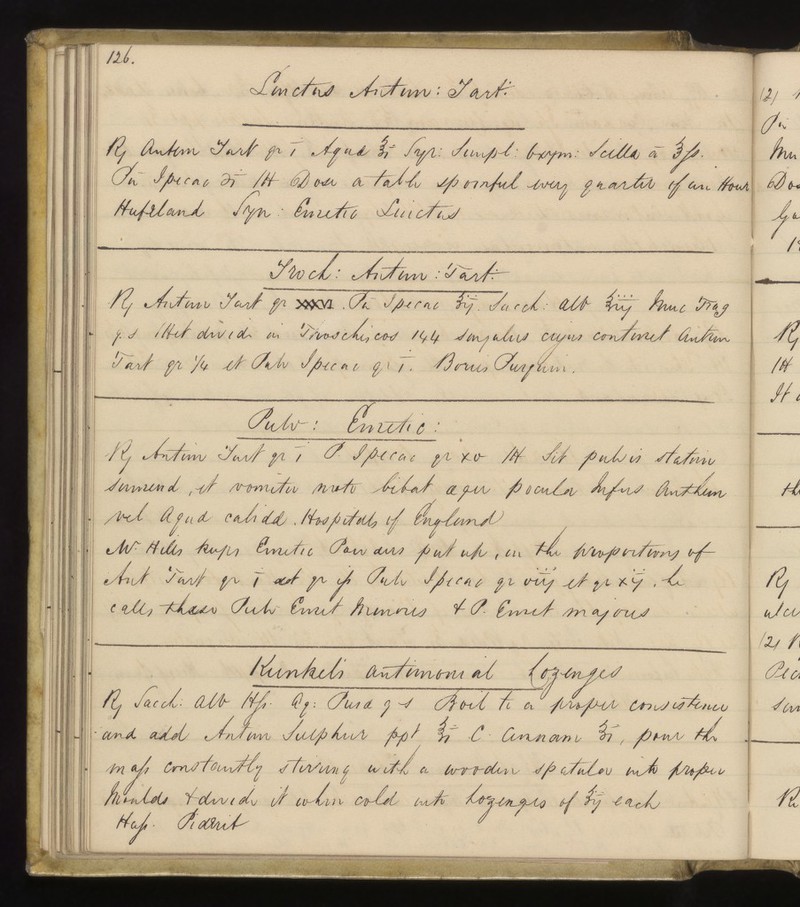 126.
Linctus Antim: Tart:
℞ Antim Tart gr i Aqua ℥i Syr: Simpl: Oxym: Scilla ā ℥ſs.
Pu Ipecac ℈i M Dose a table spoonful every quarter of an Hour
Hufeland Syn: Emetic Linctus
Troch: Antim: Tart:
℞ Antim Tart gr XXXVI. Pu Ipecac ʒij. Sacch: alb Muc Trag
q.s Mft divide in Troschiscos 144 singulus cujus continet Antim
Tart gr ¼ et Pulv Ipecac gr i.
Pulv: Emetic:
℞ Antim Tart gr i P. Ipecac gr xv M Sit pulvis statim
sumend, et vomitu moto bibat æger pocula Infus Anthem
vel Aqua calida. Hospitals of England
Mr Hills keeps Emetic Powders put up, in the proportions of
Ant Tart gr i et gr iſs Pulv Ipecac gr viij et gr xij. he
calls these Pulv Emet Minores & P. Emet majous
Kunkel's antimonial Lozenges
℞ Sacch: alb ℔ſs. Aq: Pura q-s Boil to a proper consistence
and add Antim Sulphur ppt ℥i C. Cinnam ℥i, pour the
maſs constantly stirring with a wooden spatula into proper
Moulds & divide it when cold into Lozenges of ʒij each
Piderit